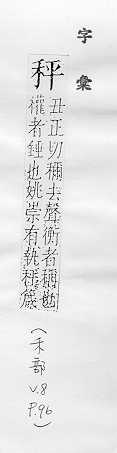 字彙
秤
丑正切稱去聲衡者稱也
權者錘也姚崇有執秤箴
(禾部
V.8
P.96)